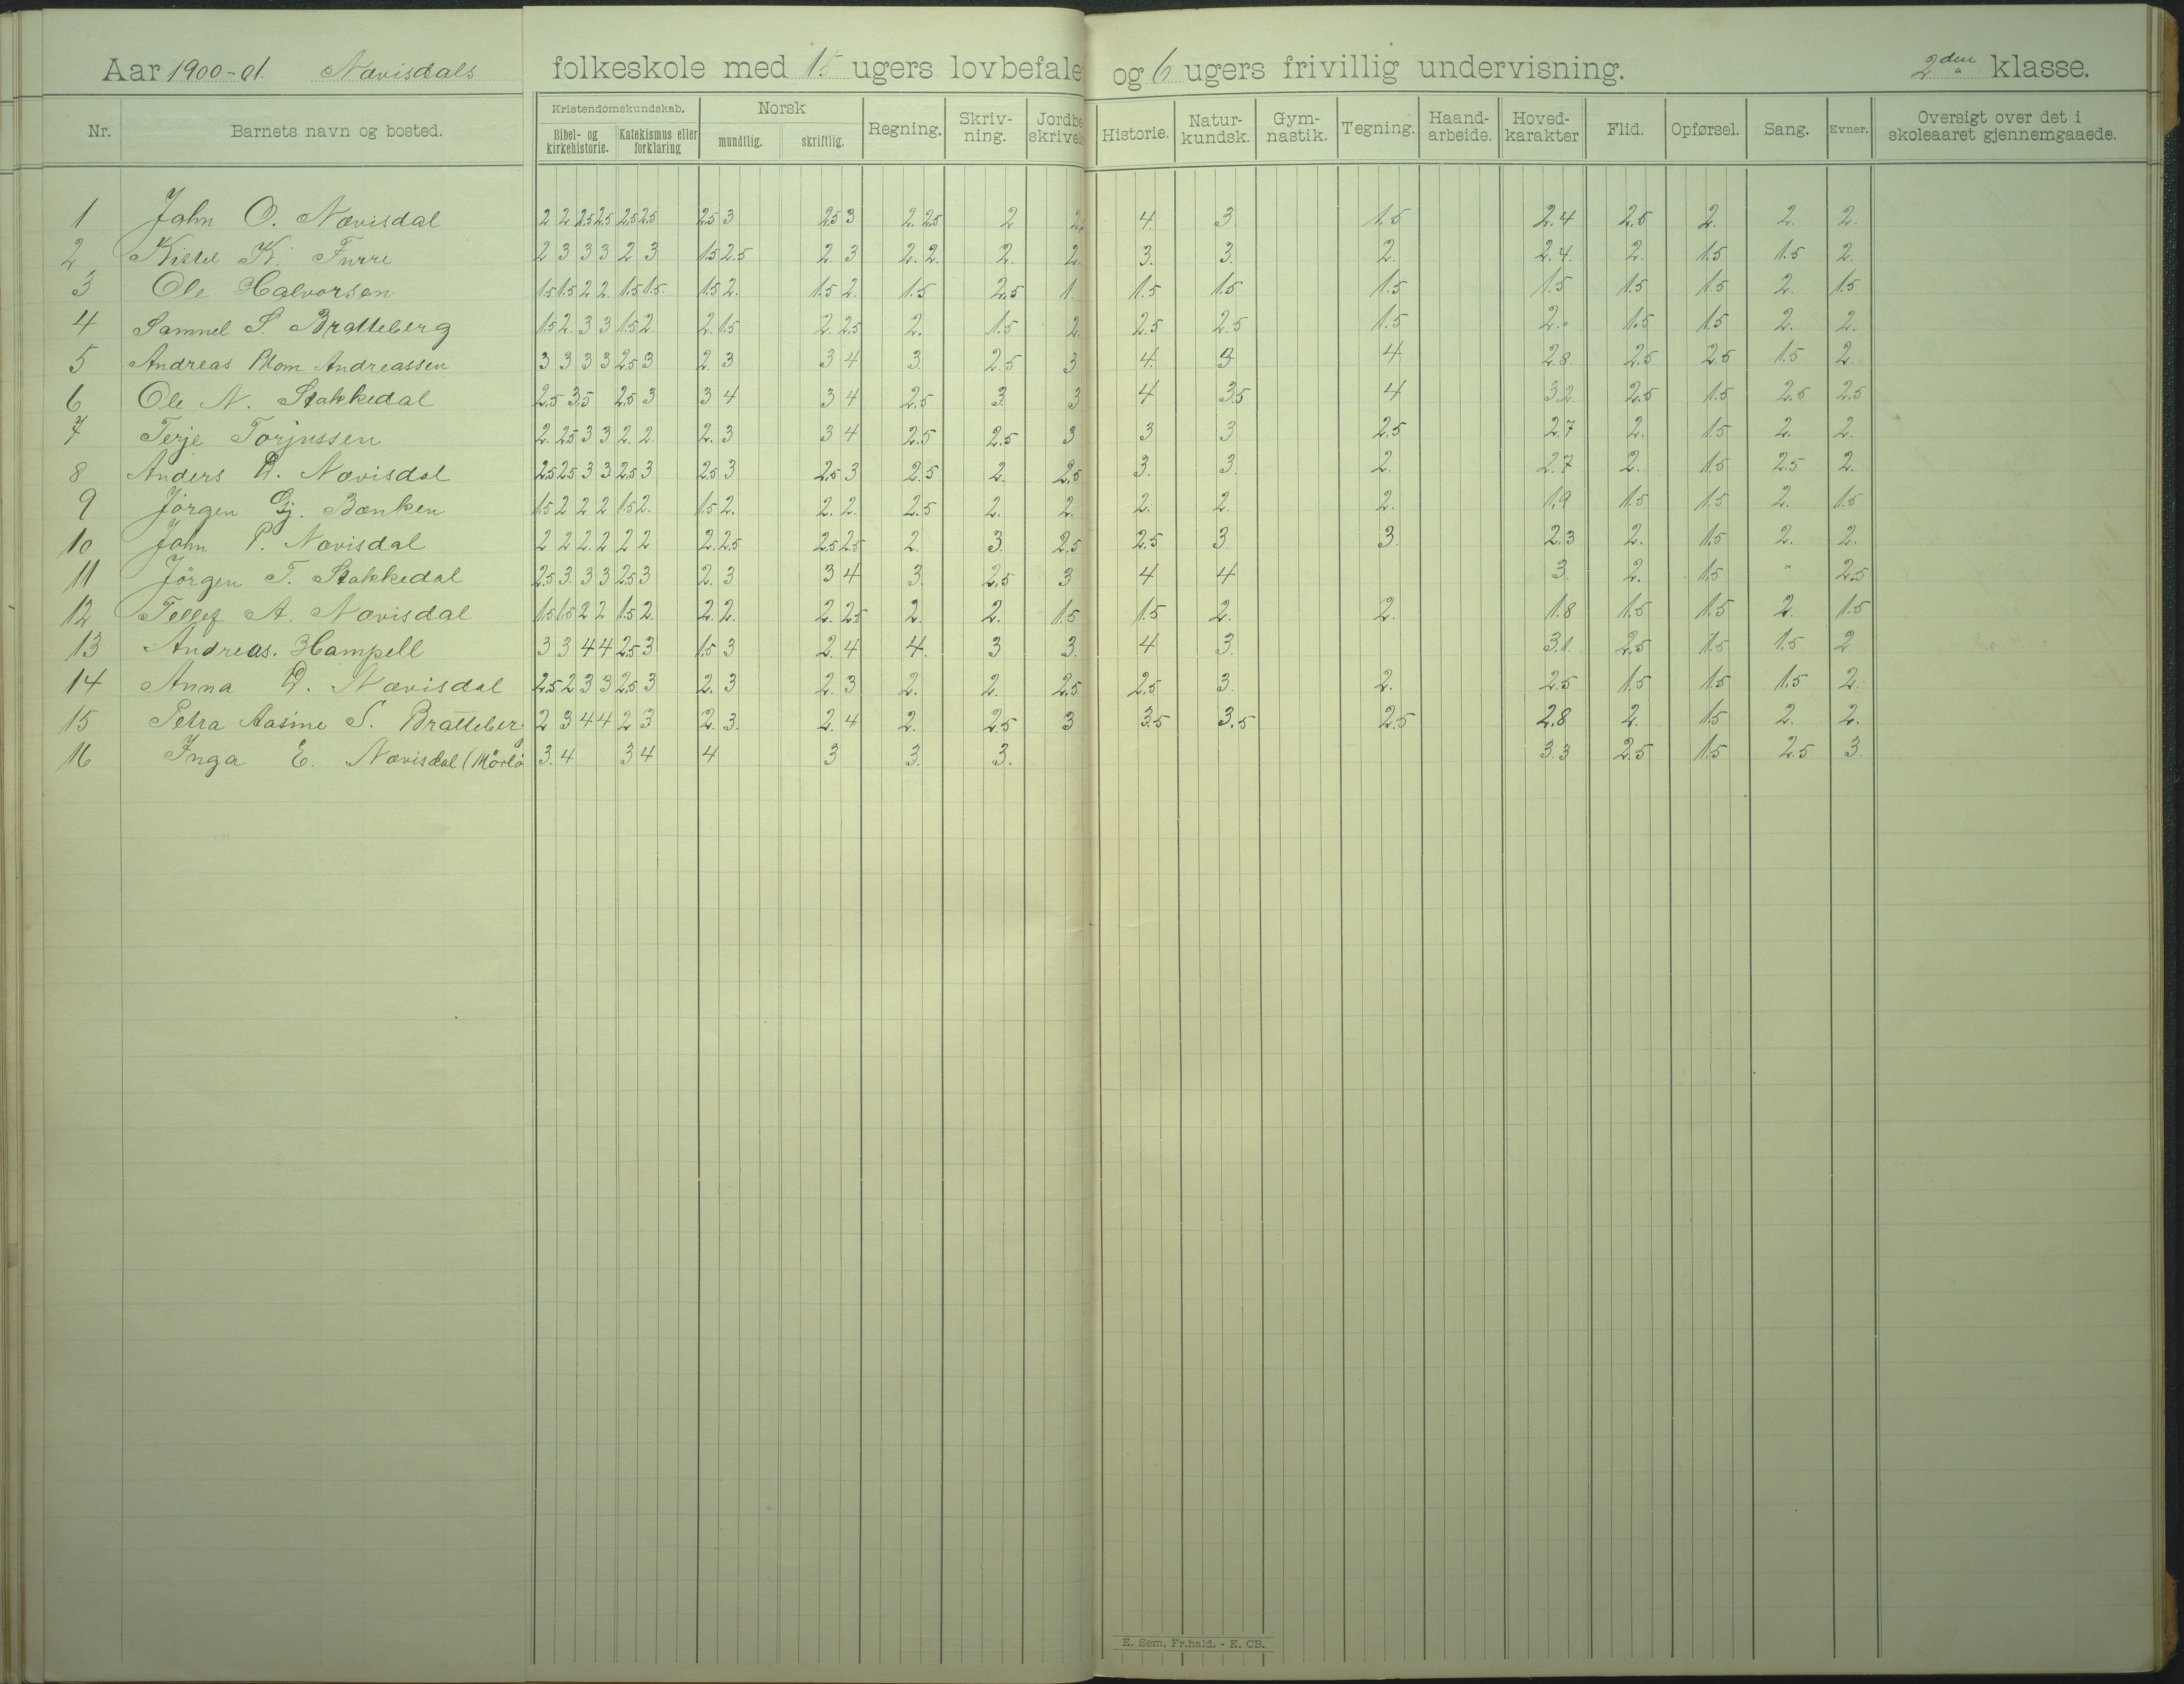 Aar 1900-01. Nævisdals folkeskole med 15 ugers lovbefale og 6 ugers frivillig undervisning. 2den klasse.
Nr. Barnets navn og bosted. Kristendomskundskab. Bibel- og kirkehistorie. Katekismus eller forklaring Norsk mundtlig. skriftlig. Regning. Skriv-ning. Jordbe skrivels Historie. Natur-kundsk. Gym-nastik. Tegning. Haand-arbeide. Hoved-karakter Flid. Opførsel. Sang. Evner. Oversigt over det i skoleaaret gjennemgaaede.
1 John O. Nævisdal 2 2 2.5 2.5 2.5 2.5 2.5 3 2.5 3 2. 2.5 2 4. 3. 1.5 2.4 2.5 2. 2. 2.
2 Kittel K. Furre 2 3 3 3 2 3 1.5 2.5 2. 3 2. 2. 2. 2. 3. 3. 2. 2.4. 2. 1.5 1.5 2.
3 Ole Halvorsen 1.5 1.5 2 2. 1.5 1.5. 1.5 2. 1.5 2. 1.5 2.5 1. 1.5 1.5 1.5 1.5 1.5 1.5 2. 1.5
4 Samuel S. Bratteberg 1.5 2. 3 3 1.5 2. 2. 1.5 2. 2.5 2. 1.5 2. 2.5 2.5 1.5 2. 1.5 1.5 2. 2.
5 Andreas Blom Andreassen 3 3 3 3 2.5 3 2. 3 3 4 3. 2.5 3 4. 3 4 2.8. 2.5 2.5 1.5 2.
6 Ole N. Stakkedal 2.5 3.5 2.5 3 3 4 3 4 2.5 3. 3 4 3.5 4 3.2 2.5 1.5 2.5 2.5
7 Terje Torjussen 2. 2.5 3 3 2. 2. 2. 3 3 4 2.5 2.5 3 3 3 2.5 2.7 2. 1.5 2. 2.
8 Anders D. Nævisdal 2.5 2.5 3 3 2.5 3 2.5 3 2.5 3 2.5 2. 2.5 3. 3. 2. 2.7 2. 1.5 2.5 2.
9 Jörgen Gj. Bænken 1.5 2 2 2 1.5 2. 1.5 2. 2. 2. 2.5 2. 2. 2. 2. 2. 1.9 1.5 1.5 2. 1.5
10 John P. Nævisdal 2 2 2. 2 2 2 2. 2.5 2.5 2.5 2. 3. 2.5 2.5 3. 3. 2.3 2. 1.5 2. 2.
11 Jörgen T. Stakkedal 2.5 3. 3 3 2.5 3 2. 3 3 4 3. 2.5 3 4 4 3. 2. 1.5 " 2.5
12 Tellef A. Nævisdal 1.5 1.5 2 2 1.5 2. 2. 2. 2. 2.5 2. 2. 1.5 1.5 2. 2. 1.8 1.5 1.5 2. 1.5
13 Andreas. Hampell 3 3 4 4 2.5 3 1.5 3 2. 4 4. 3 3. 4 3. 3.1. 2.5 1.5 1.5 2
14 Anna D. Nævisdal 2.5 2 3 3 2.5 3 2. 3 2. 3 2. 2. 2.5 2.5 3. 2. 2.5 1.5 1.5 1.5 2.
15 Petra Aasine S. Bratteberg 2 3 4 4 2 3 2. 3. 2. 4 2. 2.5 3 3.5 3.5 2.5 2.8 2. 1.5 2. 2.
16 Inga E. Nævisdal (Mörlö 3. 4 3 4 4 3 3. 3. 3.3 2.5 1.5 2.5 3.
E. Sem, Fr.hald. - E. CB.